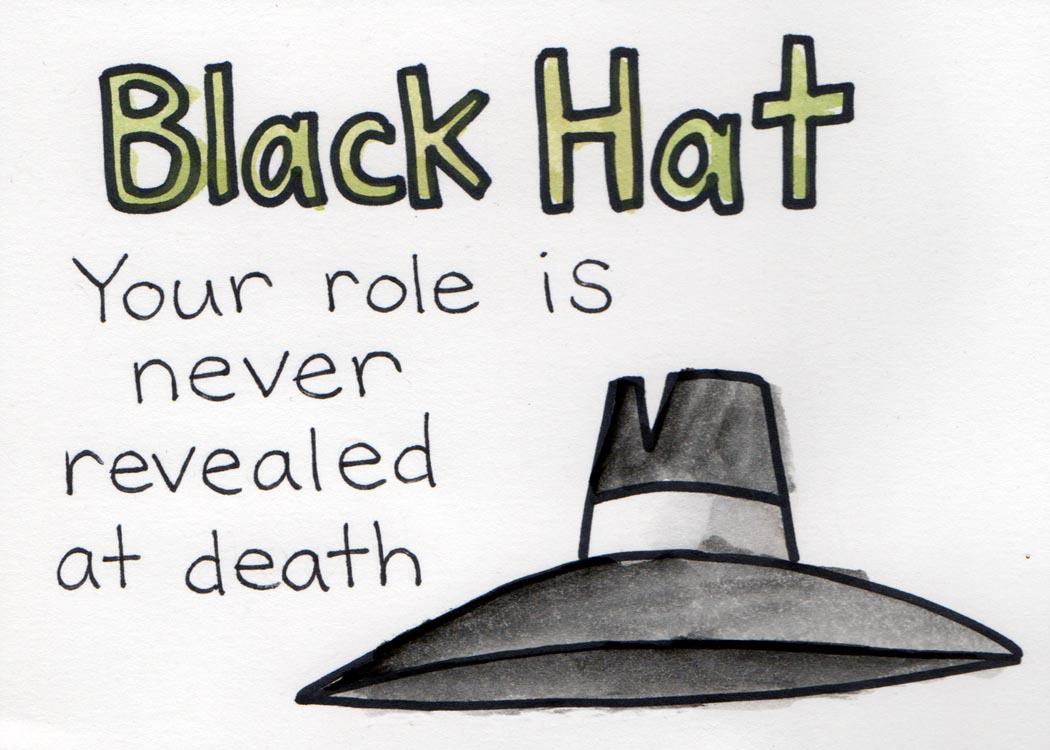 Black Hat
Your role is
never
revealed
at death